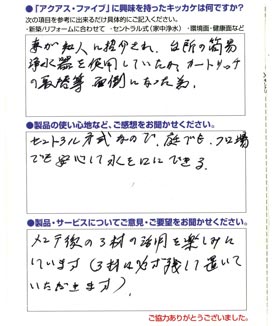 ●「アクアス・ファイブ」に興味を持ったキッカケは何ですか?
次の項目を参考に出来るだけ具体的にご記入ください。
・新築/リフォームに合わせて ・セントラル式(家中浄水) ・環境面・健康面など
妻が知人に紹介され、台所の簡易
浄水器を使用していたが、カートリッヂ
の取替等面倒になった為。
●製品の使い心地など、ご感想をお聞かせください。
セントラル方式なので、庭でも、フロ場
でも安心して水を口にできる。
●製品・サービスについてご意見・ご要望をお聞かせください。
メンテ後の3材の活用を楽しみに
しています(3材は必ず残して置いて
いただきます)。
ご協力ありがとうございました。